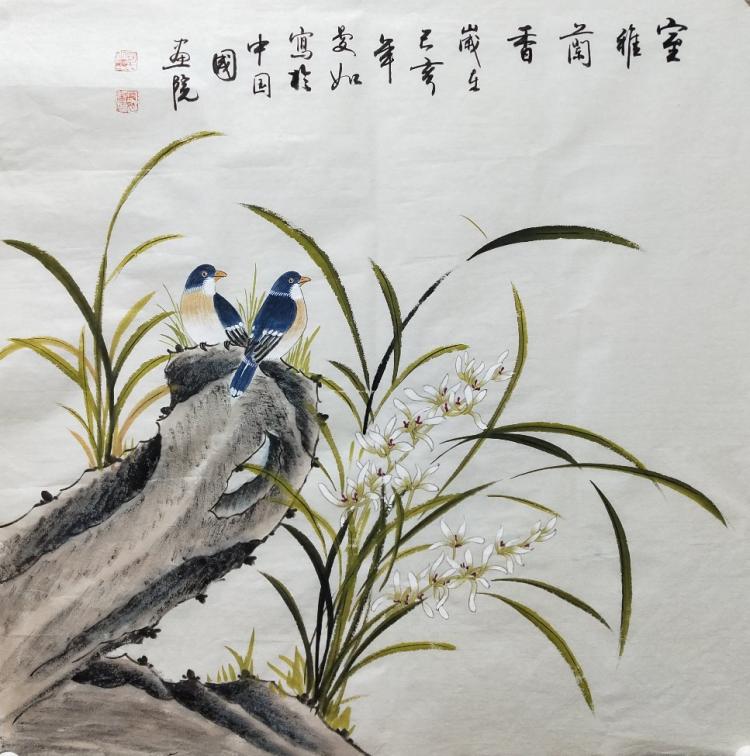 室
雅
蘭
香
歲在
己亥
年
曼如
寫於
中国
國
畫院